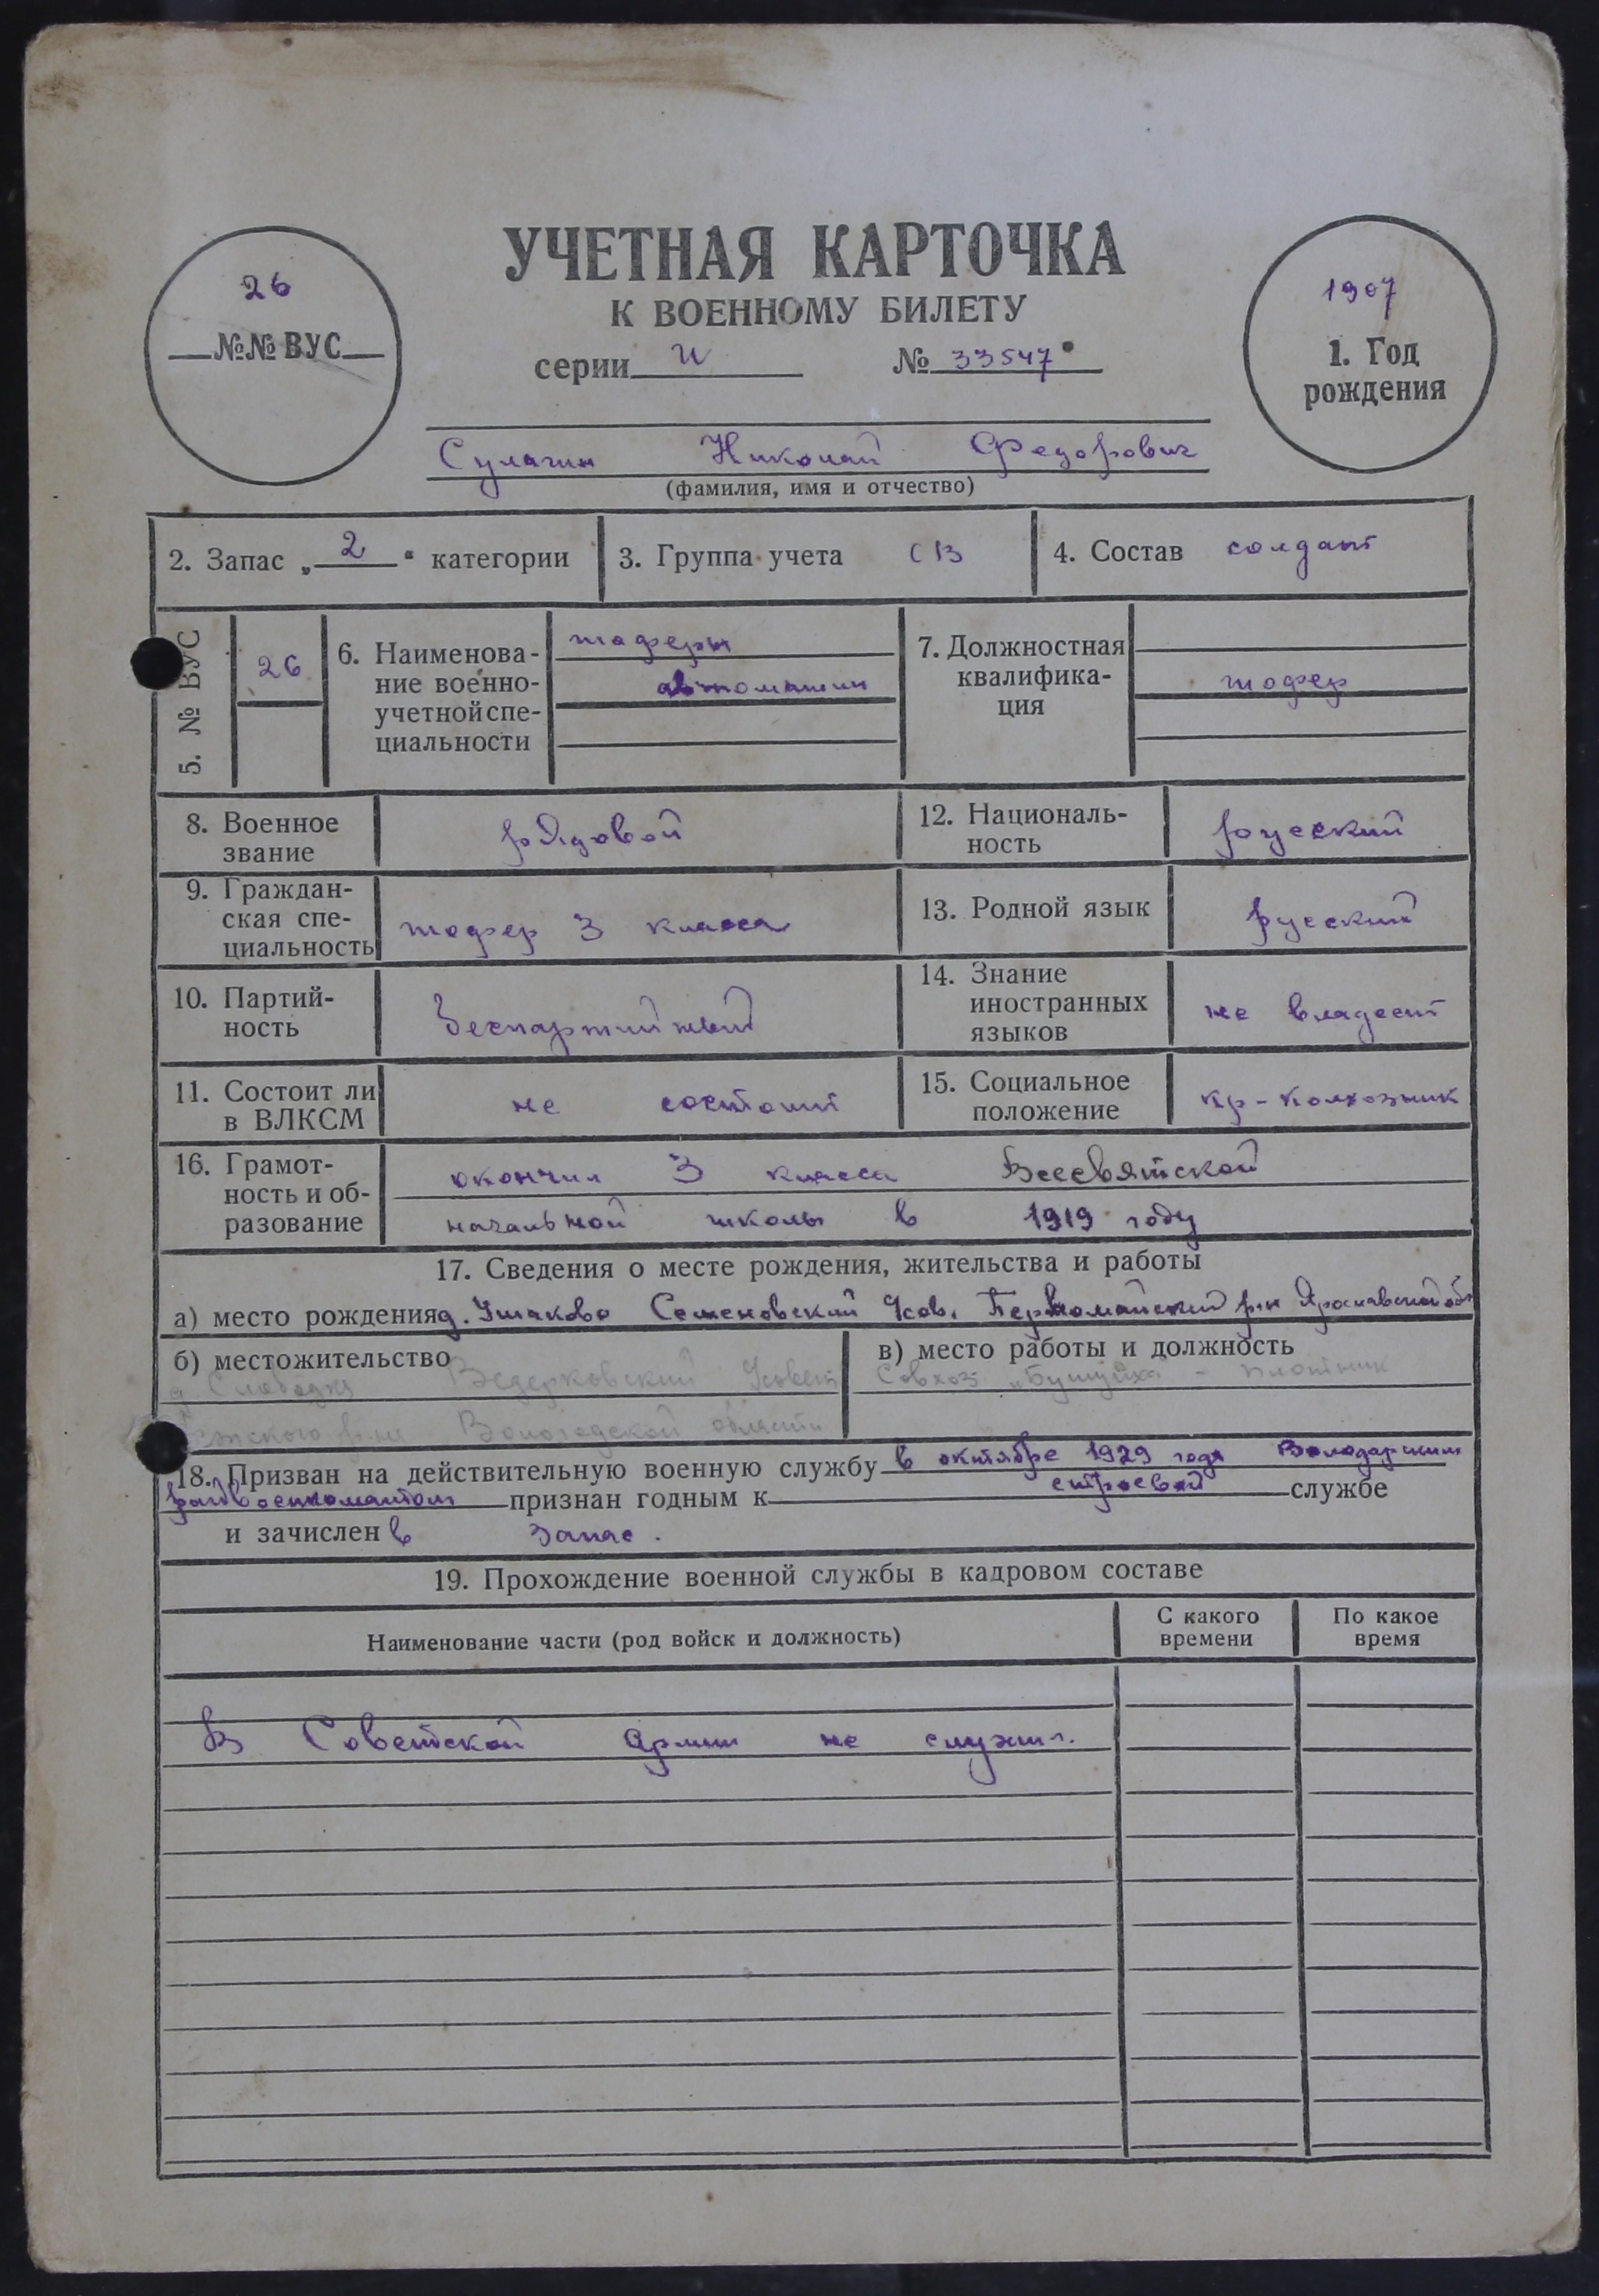 УЧЕТНАЯ КАРТОЧКА
К ВОЕННОМУ БИЛЕТУ
серии И № 33547
26
№№ ВУС
1907
1. Год
рождения
Сулагин Николай Федорович
(фамилия, имя и отчество)
2. Запас „2“ категории
3. Группа учета СВ
4. Состав солдат
5. № ВУС
26
6. Наименова-
ние военно-
учетной спе-
циальности
шоферы
автомашин
7. Должностная
квалифика-
ция
шофер
8. Военное
звание
рядовой
12. Националь-
ность
русский
9. Граждан-
ская спе-
циальность
шофер 3 класса
13. Родной язык
русский
10. Партий-
ность
Беспартийный
14. Знание
иностранных
языков
не владеет
11. Состоит ли
в ВЛКСМ
не состоит
15. Социальное
положение
кр-колхозник
16. Грамот-
ность и об-
разование
окончил 3 класса Всесвятской
начальной школы в 1919 году
17. Сведения о месте рождения, жительства и работы
а) место рождения д. Ушаково Семеновский Усов. Первомайский р-н Ярославской обл
б) местожительство
д. Слободка Ведерковский
р-на Вологодской области
в) место работы и должность
Совхоз - плотник
18. Призван на действительную военную службу в октябре 1929 года Володарским
райвоенкоматом признан годным к строевой службе
и зачислен в запас.
19. Прохождение военной службы в кадровом составе
Наименование части (род войск и должность)
С какого
времени
По какое
время
В Советской Армии не служил.